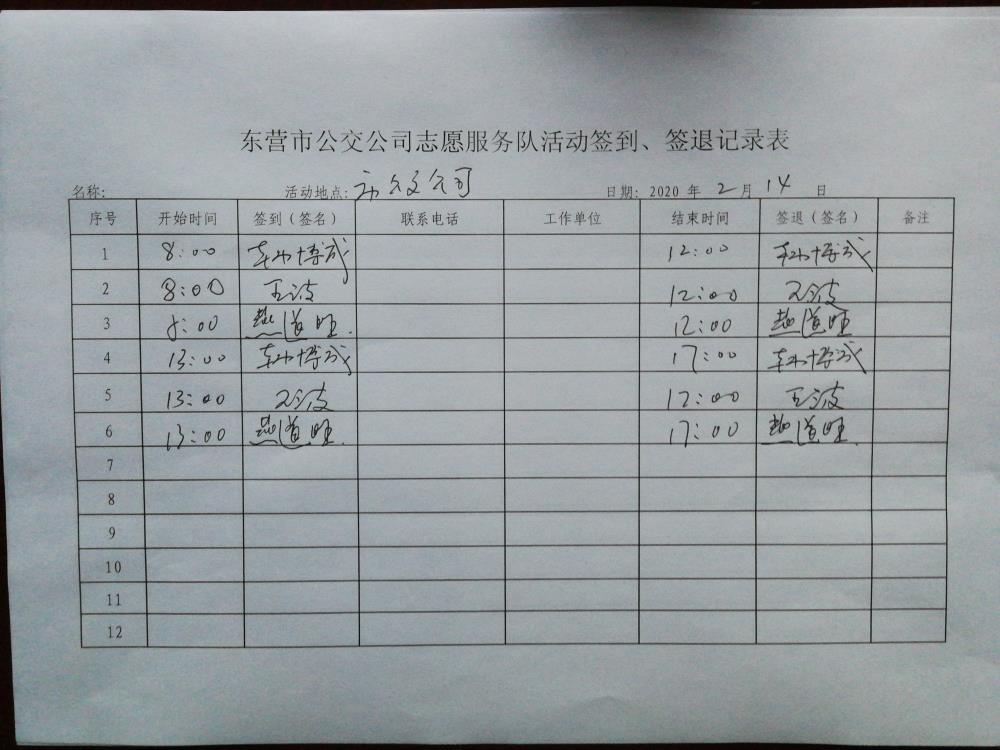 东营市公交公司志愿服务队活动签到、签退记录表
名称: 活动地点: 市公交公司 日期: 2020 年 2 月 14 日
序号 开始时间 签到（签名） 联系电话 工作单位 结束时间 签退（签名） 备注
1 8:00 12:00
2 8:00 王波 12:00 王波
3 8:00 赵道旺 12:00 赵道旺
4 13:00 17:00
5 13:00 王波 17:00 王波
6 13:00 赵道旺 17:00 赵道旺
7
8
9
10
11
12